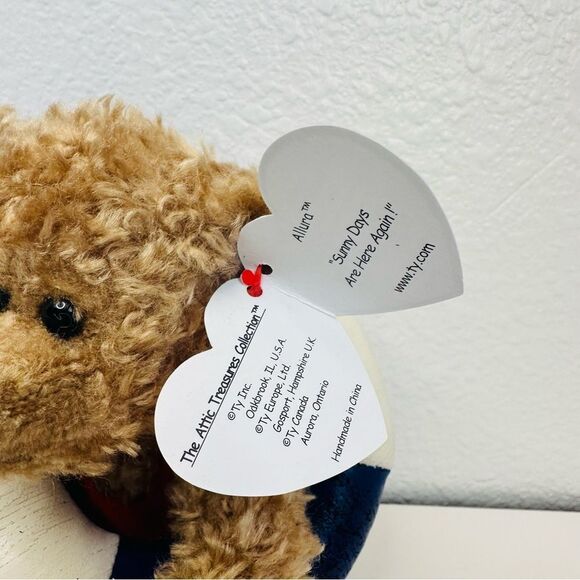 The Attic Treasures Collection™
©Ty Inc.
Oakbrook, IL, U.S.A.
©Ty Europe, Ltd.
Gosport, Hampshire U.K.
©Ty Canada
Aurora, Ontario
Handmade in China
Allura™
"Sunny Days
Are Here Again!"
www.ty.com